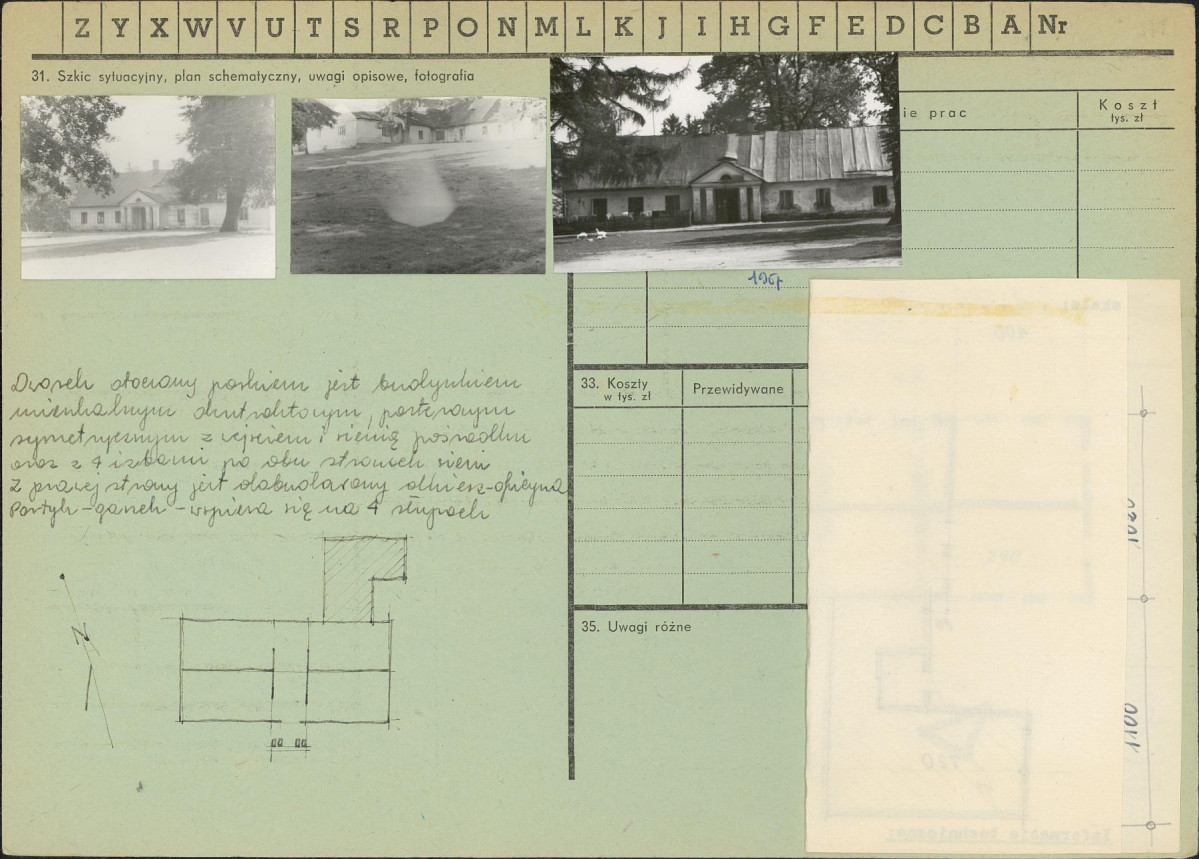 Z Y X W V U T S R P O N M L K J I H G F E D C B A Nr
31. Szkic sytuacyjny, plan schematyczny, uwagi opisowe, fotografia
ie prac
Koszt
tys. zł
Dworek otoczony parkiem jest budynkiem
mieszkalnym dwutraktowym, parterowym
symetrycznym z wejściem i sienią pośrodku
oraz z 4 izbami po obu stronach sieni
Z prawej strony jest dobudowany alkierz-oficyna
Portyk-ganek-wspiera się na 4 słupach
N
33. Koszty
w tys. zł
Przewidywane
35. Uwagi różne
1080
1100
720
Informacje techniczne: